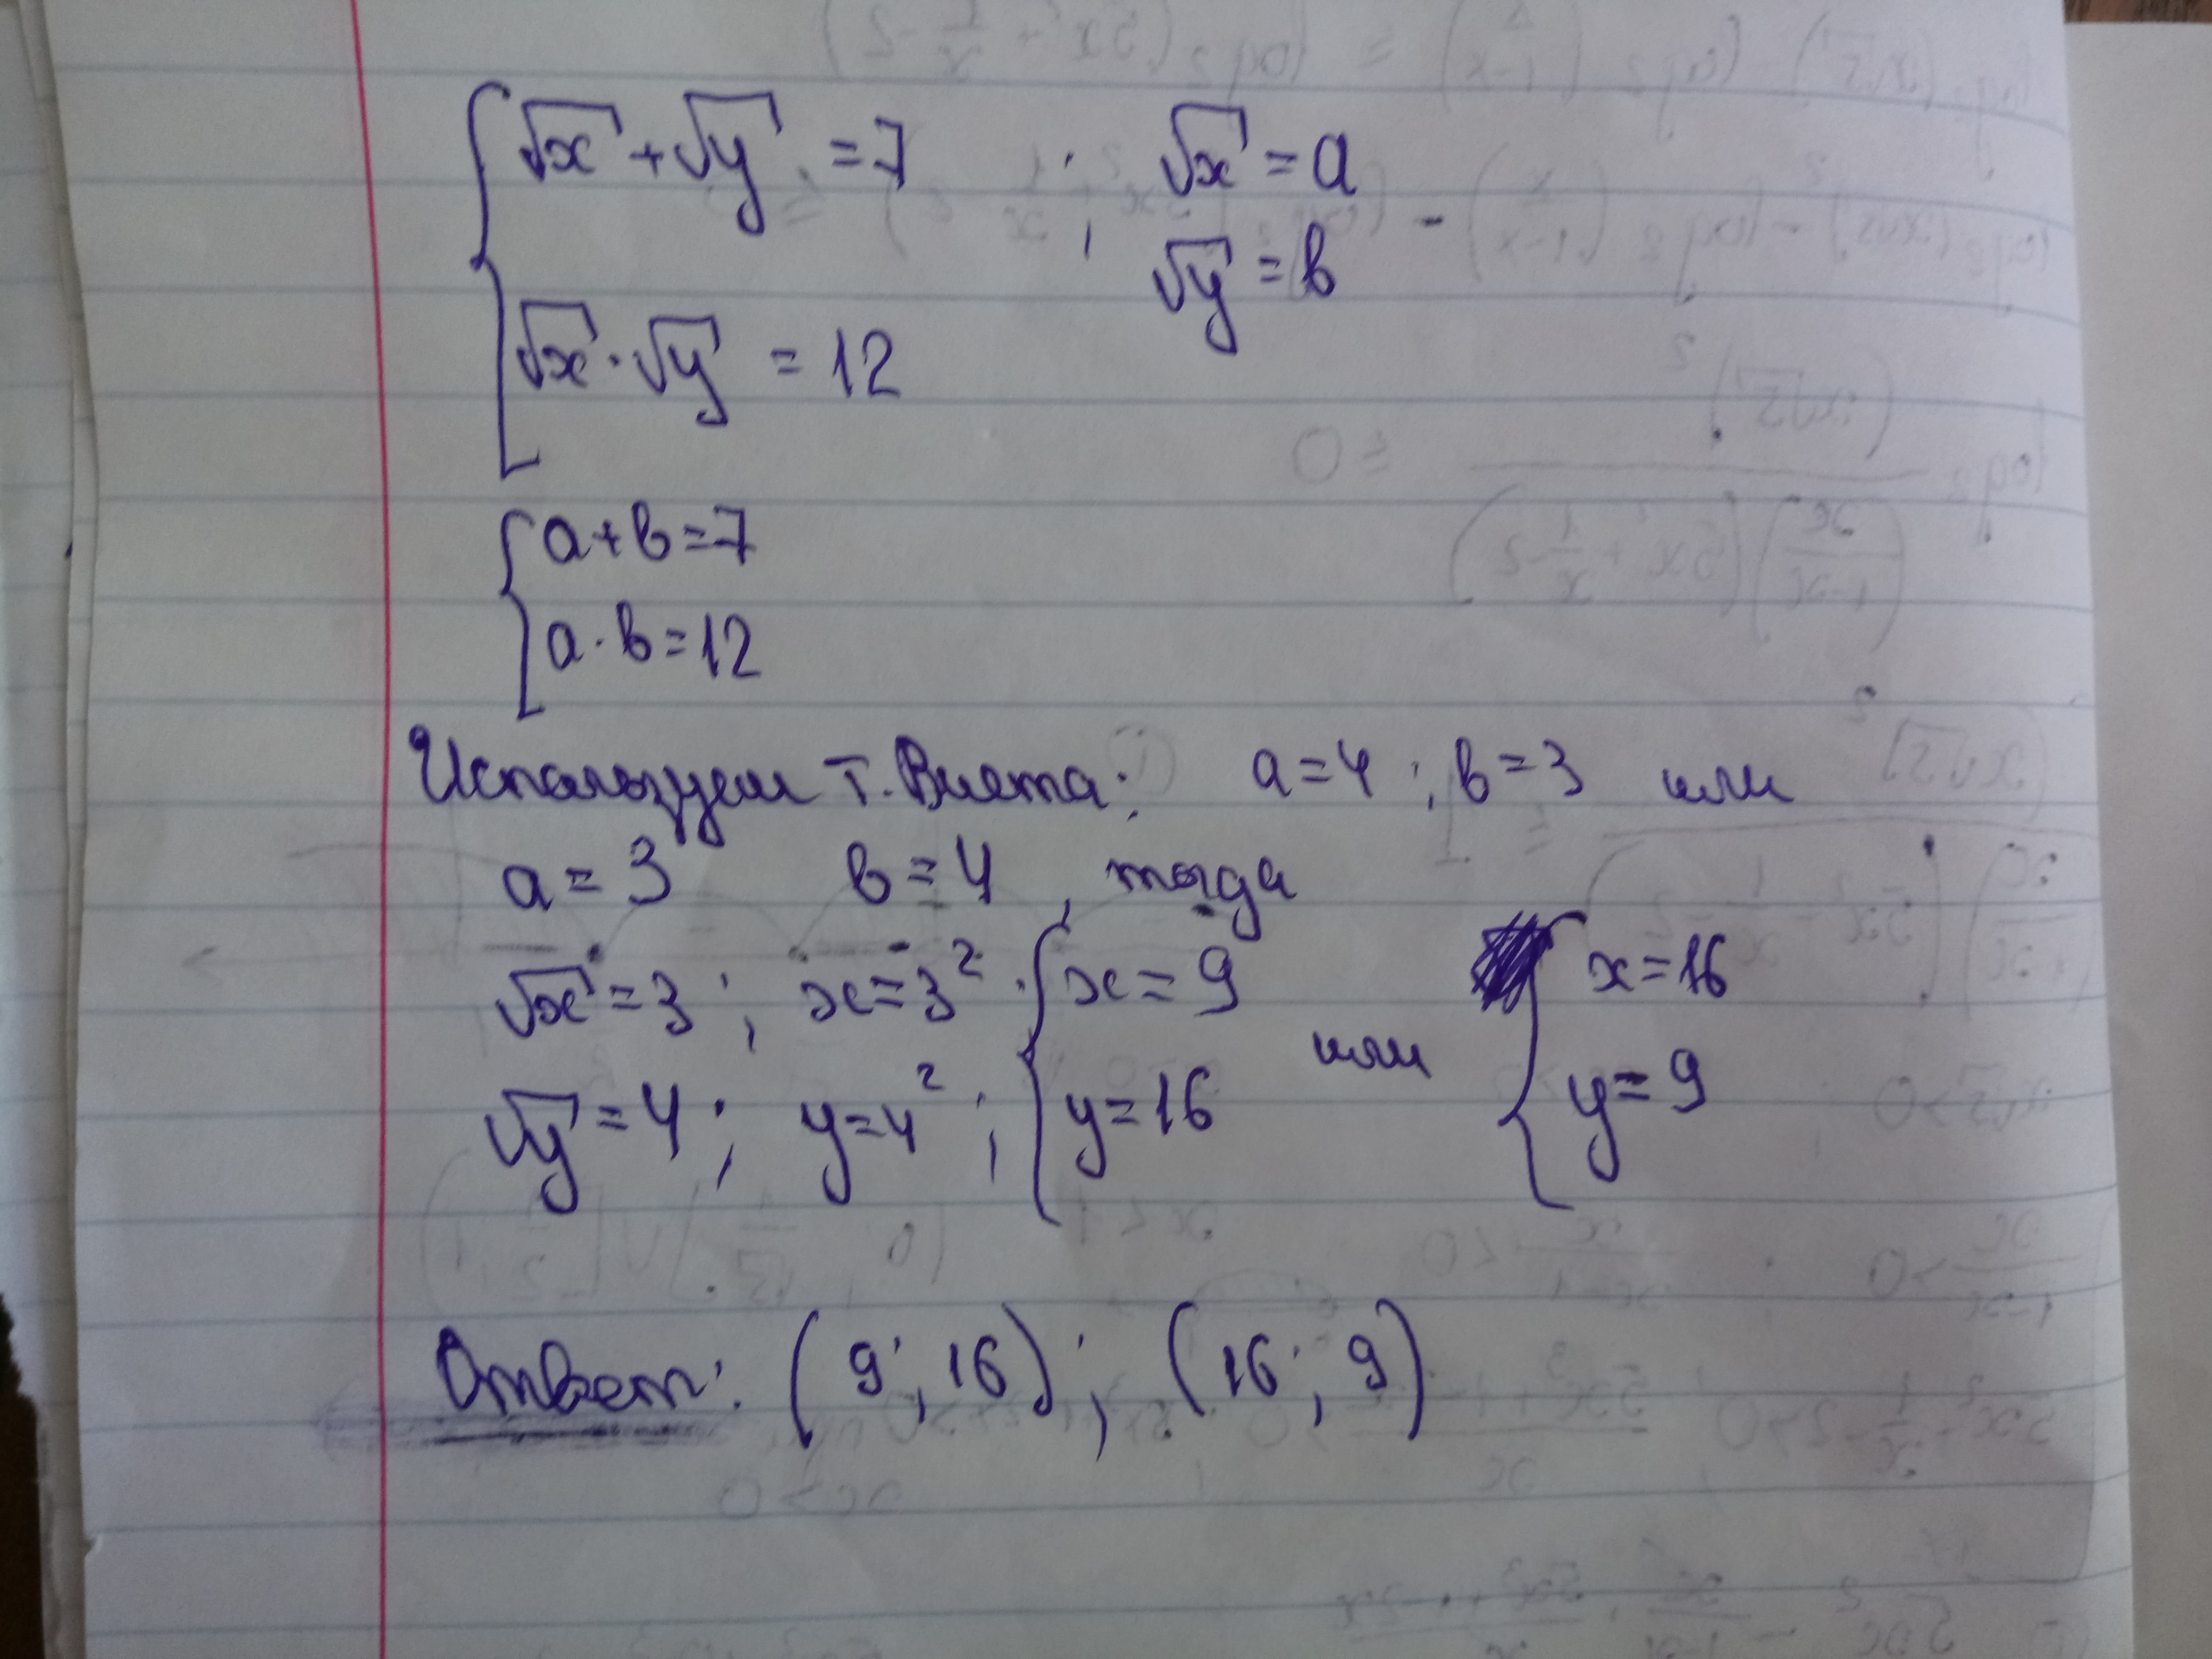 √x + √y = 7 ; √x = a
√y = b
√x · √y = 12
a + b = 7
a · b = 12
Используем т. Виета: a = 4 ; b = 3 или
a = 3 b = 4 , тогда
√x = 3 ; x = 3² ; x = 9 или x = 16
√y = 4 ; y = 4² ; y = 16 y = 9
Ответ: (9 ; 16) ; (16 ; 9)